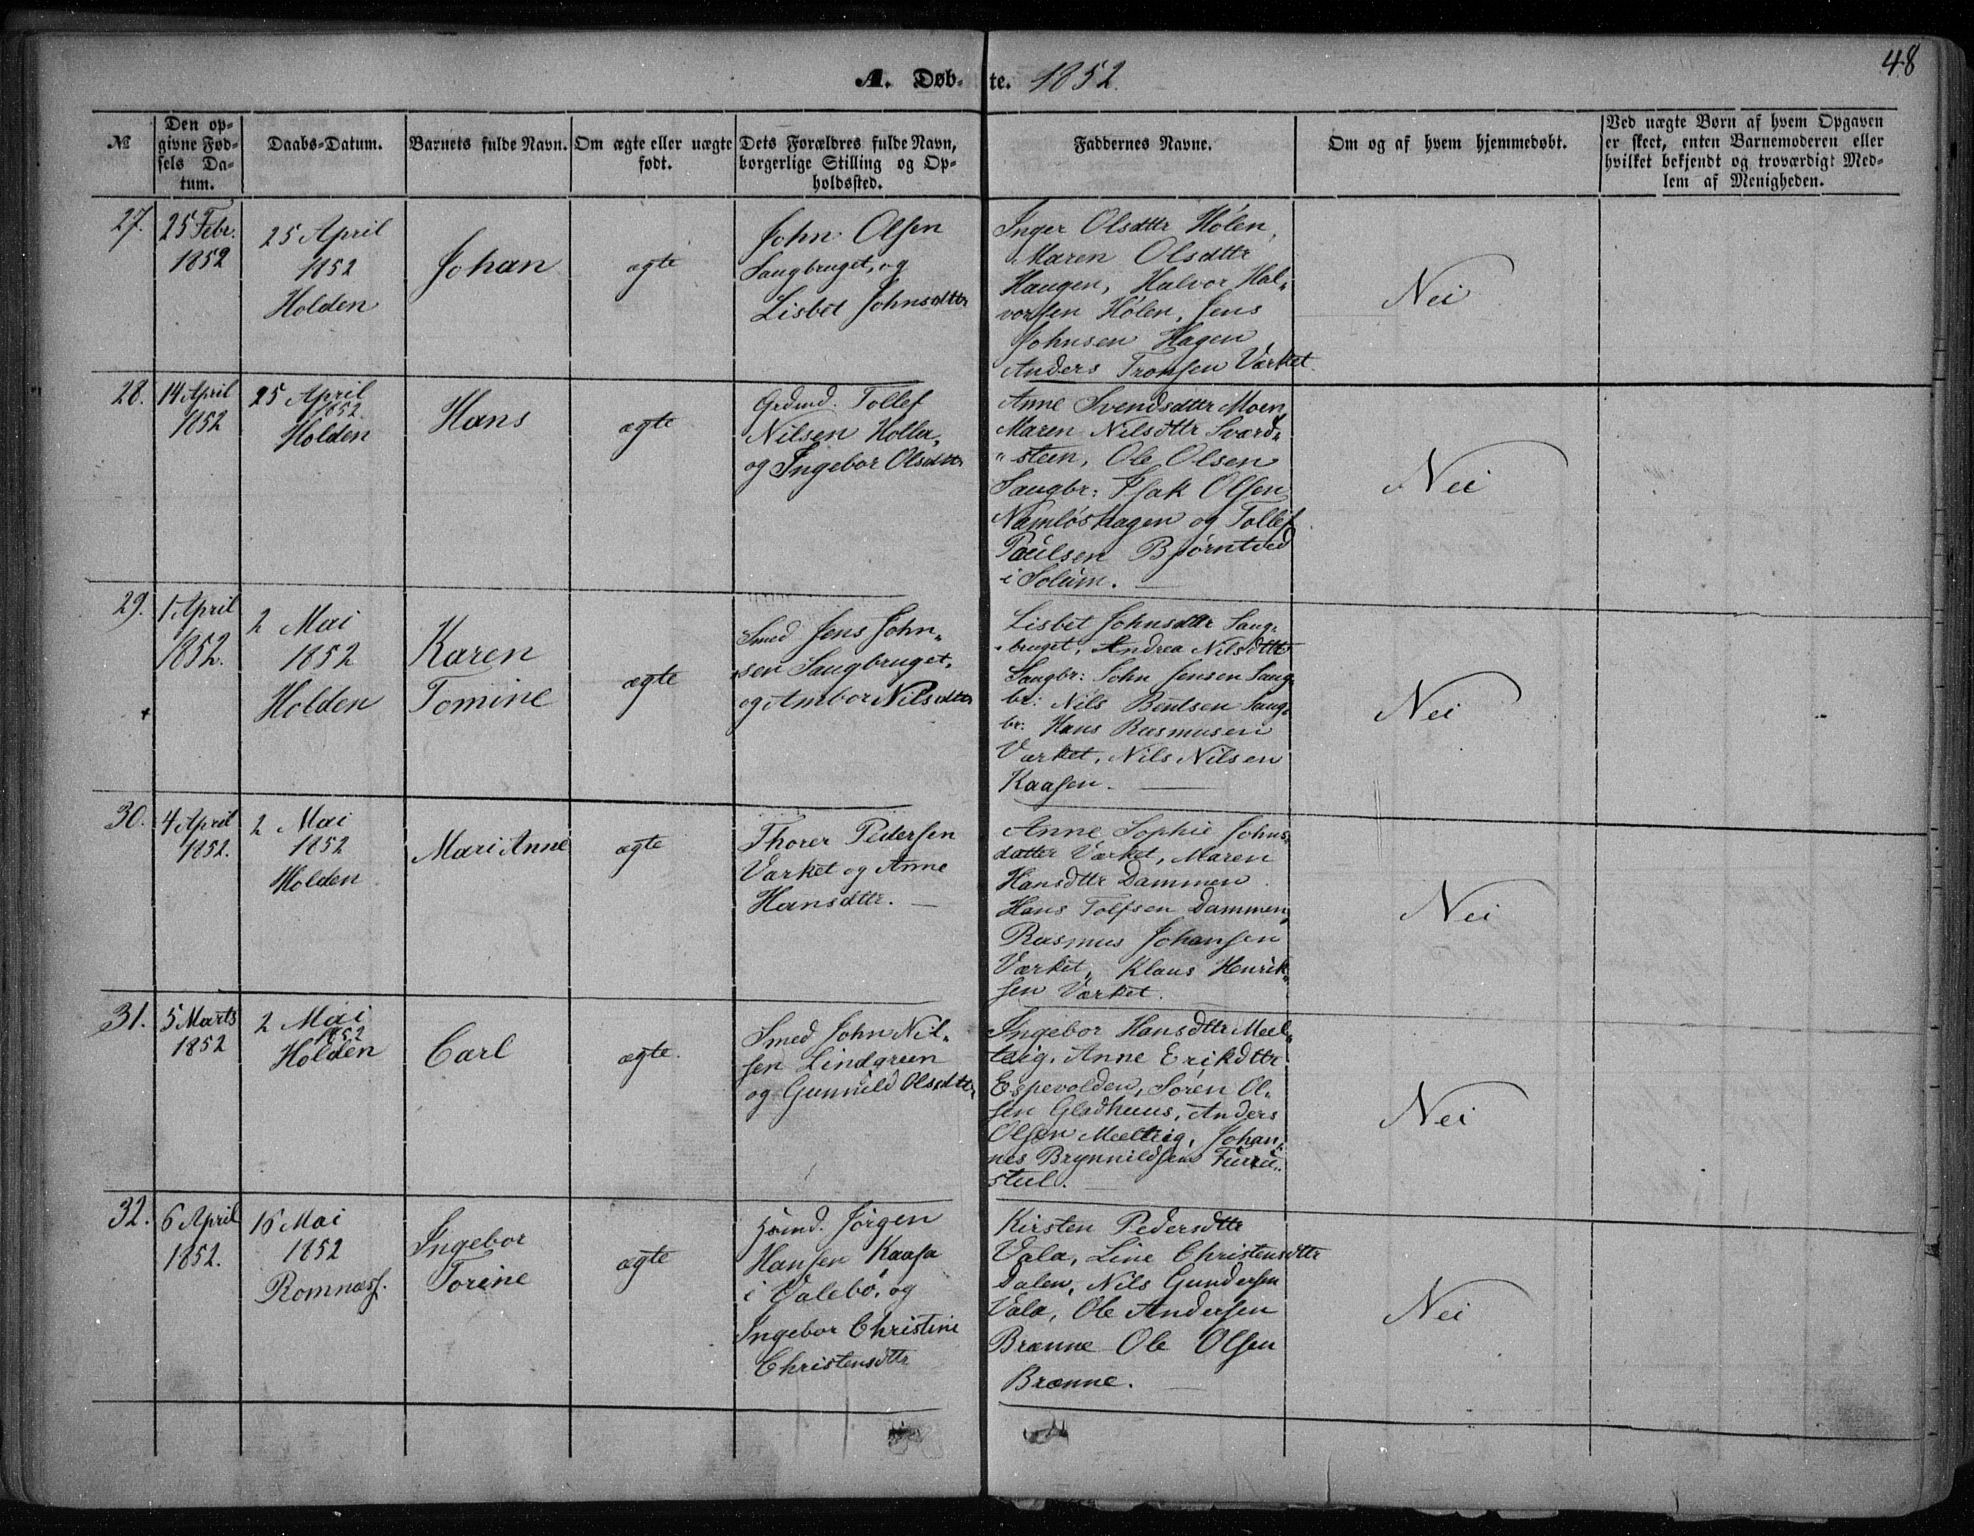 48
A. Døb- te. 1852.
№
Den op-
givne Fød-
sels Da-
tum.
Daabs-Datum.
Barnets fulde Navn.
Om ægte eller uægte
født.
Dets Forældres fulde Navn,
borgerlige Stilling og Op-
holdssted.
Faddernes Navne.
Om og af hvem hjemmedøbt.
Ved uægte Børn af hvem Opgaven
er skeet, enten Barnemoderen eller
hvilket bekjendt og troværdigt Med-
lem af Menigheden.
27.
25 Febr.
1852
25 April
1852
Holden
Johan
ægte
John Olsen
Saugbruget, og
Lisbet Johnsdttr
Inger Olsdttr Hölen,
Maren Olsdttr
Haugen, Halvor Hal-
vorsen Hölen, Jens
Johnsen Hagen
Anders Tronsen Værket.
Nei
28.
14 April
1852
25 April
1852.
Holden
Hans
ægte
Grdmd. Tollef
Nilsen Holla,
og Ingebor Olsdttr
Anne Svendsdttr Moen,
Maren Nilsdttr Sværd-
steen, Ole Olsen
Saugbr: Isak Olsen
Namløshagen og Tollef
Paulsen Bjørntved
i Solum.
Nei
29.
1 April
1852.
2 Mai
1852
Holden
Karen
Tomine
ægte
Smed Jens John-
sen Saugbruget,
og Ambor Nilsdttr
Lisbet Johnsdttr Saug-
bruget, Andrea Nilsdttr
Saugbr: John Jensen Saug-
br: Nils Bentsen Saug-
br: Hans Rasmusen
Værket, Nils Nilsen
Kaasen.
Nei
30.
4 April
1852.
2 Mai
1852
Holden
Mari Anne
ægte
Thorer Pedersen
Værket og Anne
Hansdttr.
Anne Sophie Johns-
datter Værket, Maren
Hansdttr Dammen
Hans Tolfsen Dammen,
Rasmus Johansen
Værket, Klaus Henrik-
sen Værket.
Nei
31.
5 Marts
1852
2 Mai
1852
Holden
Carl
ægte.
Smed John Nil-
sen Lindgreen
og Gunnild Olsdttr
Ingebor Hansdttr Meel-
teig, Anne Erikdttr
Espevolden, Sören Ol-
sen Gladhuus, Anders
Olsen Meelteig, Johan-
nes Brynnildsen Furru-
stul.
Nei
32.
6 April
1852.
16 Mai
1852
Romnæss.
Ingebor
Torine
ægte
Jörgen
Hansen Kaasa
i Valebö, og
Ingebor Christine
Christensdttr
Kirsten Pedersdttr
Vala, Line Christensdttr
Dalen, Nils Gundersen
Vala, Ole Andersen
Brænne Ole Olsen
Brænne.
Nei